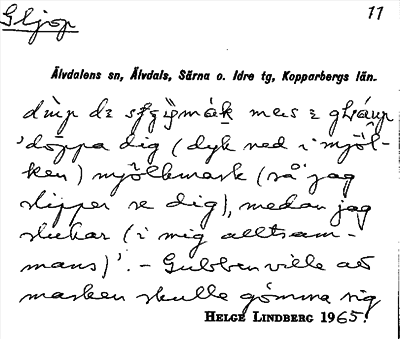 Gljop
11
Älvdalens sn, Älvdals, Särna o. Idre tg, Kopparbergs län.
'doppa dig (dyk ned i mjöl-
ken) mjölkmask (så jag
slipper se dig), medan jag
slukar (i mig alltsam-
mans)'. – Gubben ville att
masken skulle gömma sig
HELGE LINDBERG 1965.